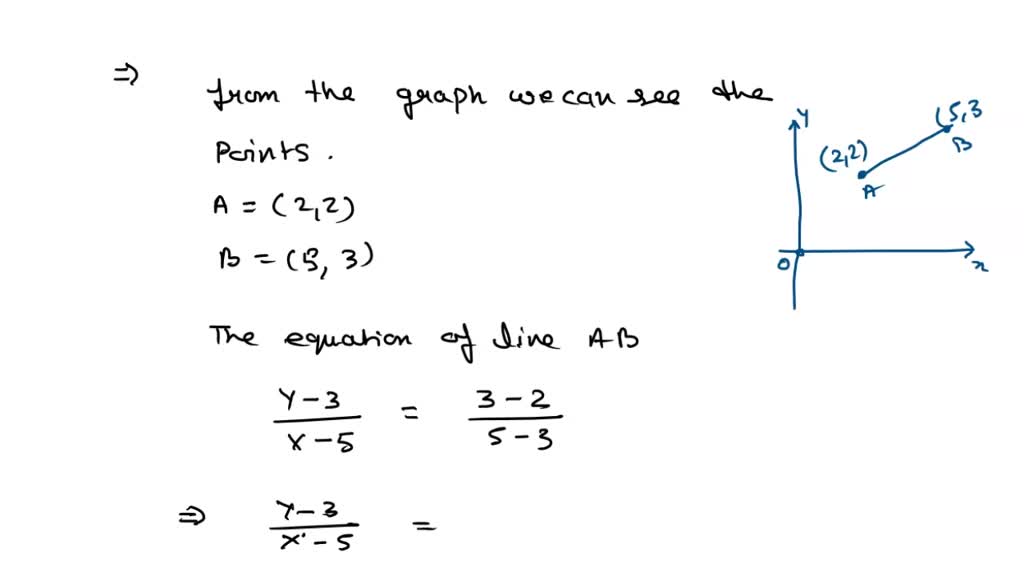 ⇒
from the graph we can see the
Points.
A = (2,2)
B = (5, 3)
The equation of line AB
Y-3 / X-5 = 3-2 / 5-3
⇒ Y-3 / X-5 =
Y
(5,3
B
(2,2)
A
O
x